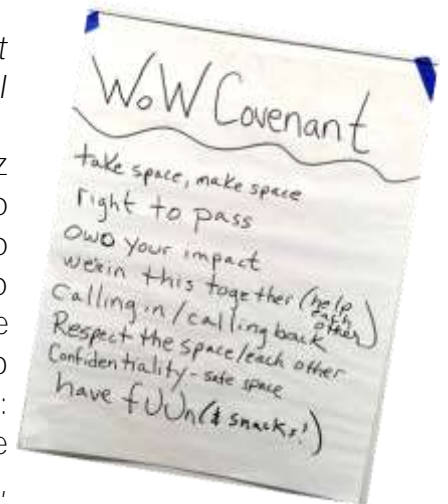 WoW Covenant
take space, make space
right to pass
OWO your impact
we're in this together (help each other)
Calling in / calling back
Respect the space/each other
Confidentiality - safe space
have fUUn (& snacks!)
t
l
z
o
o
o
e
o
:
e
,